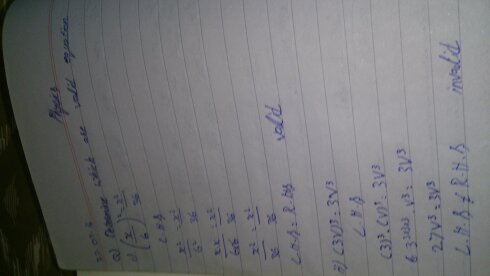 Physics
Q.no.4
a) Determine which are valid equation
1) (x/6)² = x²/36
L.H.S
x²/6² = x²/36
x.x/6x6 = x²/36
x²/36 = x²/36
L.H.S = R.H.S valid
2) (3v)³ = 3v³
L.H.S
(3)³ . (v)³ = 3v³
3v³
27v³ = 3v³
L.H.S ≠ R.H.S invalid